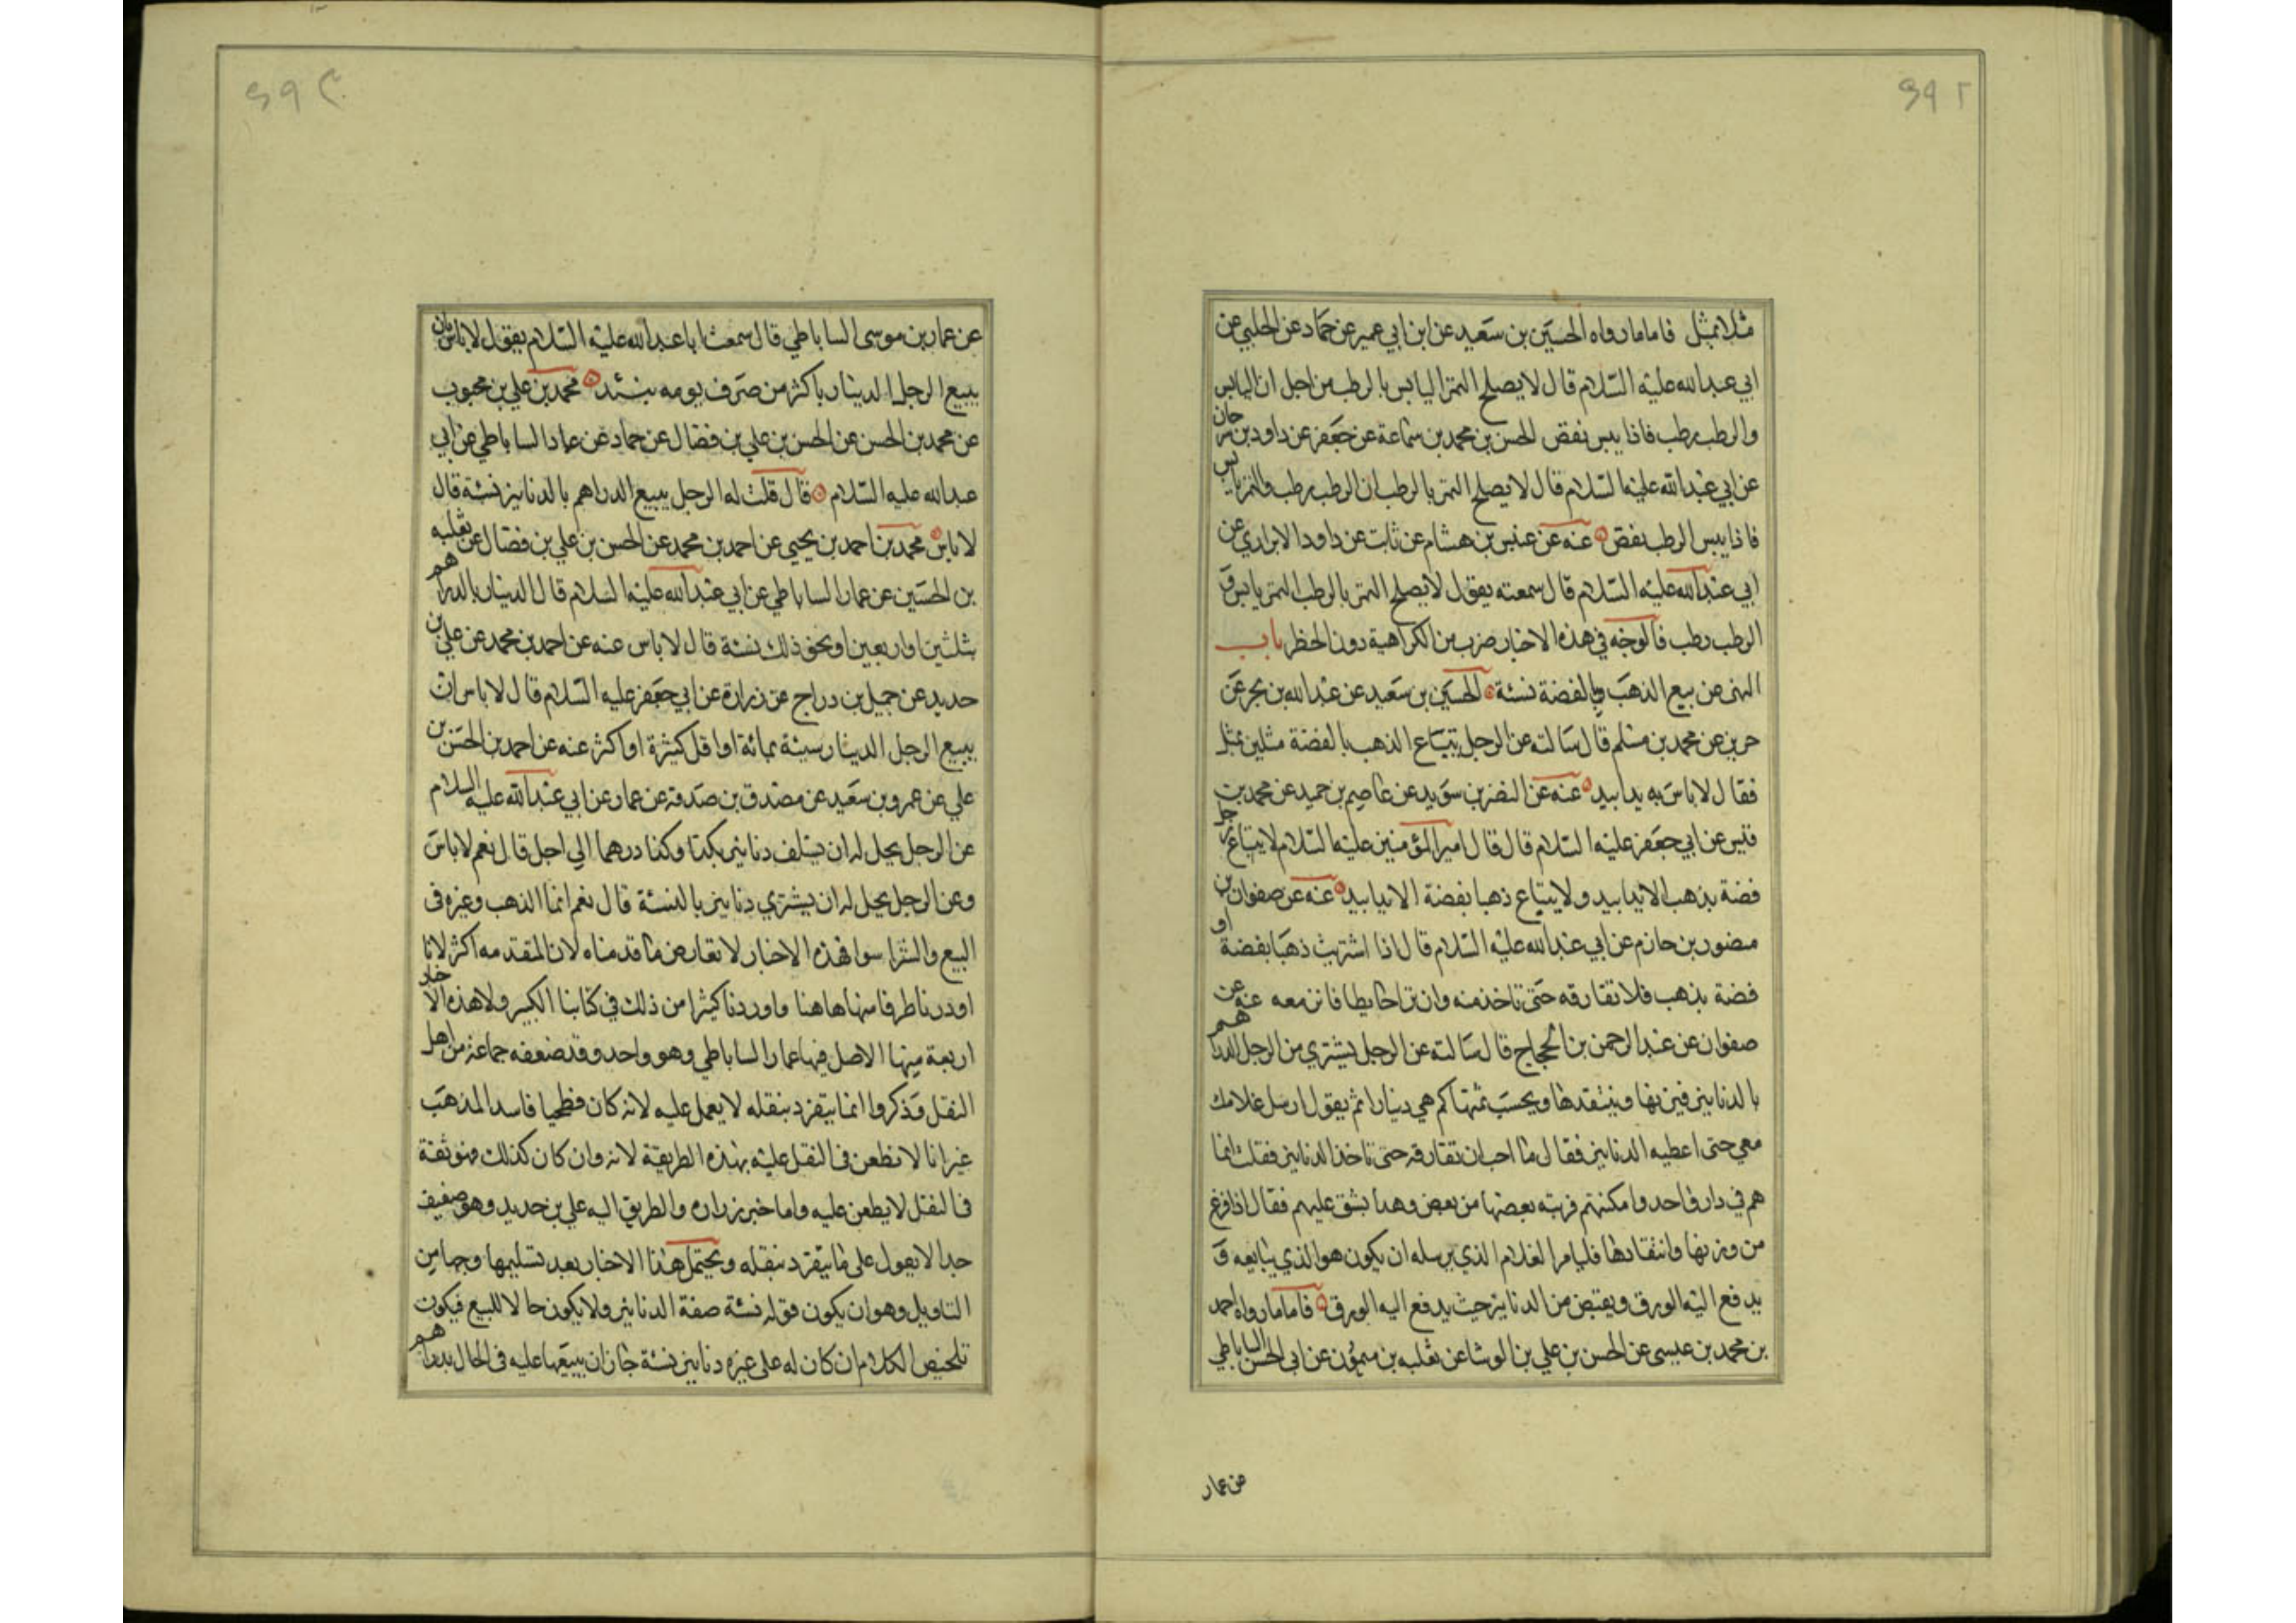 ٣٩٢
مثلا بمثل فاما ما رواه الحسين بن سعيد عن ابن ابي عمير عن حماد عن الحلبي عن
ابي عبدالله عليه السلام قال لا يصلح التمر اليابس بالرطب من اجل ان اليابس
والرطب رطب فاذا يبس نقص الحسن بن محمد بن سماعة عن جعفر عن داود بن سرحان
عن ابي عبدالله عليه السلام قال لا يصلح التمر بالرطب ان الرطب رطب والتمر يابس
فاذا يبس الرطب نقص عنه عن عنبس بن هشام عن ثابت عن داود الابزاري عن
ابي عبدالله عليه السلام قال سمعته يقول لا يصلح التمر بالرطب التمر يابس و
الرطب رطب فالوجه في هذه الاخبار ضرب من الكراهية دون الحظر باب
النهى عن بيع الذهب بالفضة نسئة الحسين بن سعيد عن عبدالله بن بحر عن
حريز عن محمد بن مسلم قال سالته عن الرجل يبتاع الذهب بالفضة مثلين بمثل
فقال لا باس به يدا بيد عنه عن النضر بن سويد عن عاصم بن حميد عن محمد بن
قيس عن ابي جعفر عليه السلام قال قال امير المؤمنين عليه السلام لا يبتاع رجل
فضة بذهب الا يدا بيد ولا يبتاع ذهبا بفضة الا يدا بيد عنه عن صفوان بن
منصور بن حازم عن ابي عبدالله عليه السلام قال اذا اشتريت ذهبا بفضة او
فضة بذهب فلا تفارقه حتى تاخذ منه وان نزا حايطا فانز معه عنه عن
صفوان عن عبدالرحمن بن الحجاج قال سالته عن الرجل يشتري من الرجل الدراهم
بالدنانير فيزنها وينتقدها ويحسب ثمنها كم هي دينارا ثم يقول ارسل غلامك
معي حتى اعطيه الدنانير فقال ما احب ان تفارقه حتى تاخذ الدنانير فقلت انما
هم في دار واحد وامكنتهم قريبة بعضها من بعض وهذا يشق عليهم فقال اذا فرغ
من وزنها وانتقادها فليامر الغلام الذي يرسله ان يكون هو الذي يبايعه و
يدفع اليه الورق ويقبض من الدنانير حيث يدفع اليه الورق فاما ما رواه احمد
بن محمد بن عيسى عن الحسن بن علي بن الوشا عن ثعلبه بن ميمون عن ابي الحسن الساباطي
عن عمار
عن عمار بن موسى الساباطي قال سمعت ابا عبدالله عليه السلام يقول لا باس بان
يبيع الرجل الدينار باكثر من صرف يومه نسئة محمد بن علي بن محبوب
عن محمد بن الحسن عن الحسن بن علي بن فضال عن حماد عن عمار الساباطي عن ابي
عبدالله عليه السلام قال قلت له الرجل يبيع الدراهم بالدنانير نسئة قال
لا باس محمد بن احمد بن يحيى عن احمد بن محمد عن الحسن بن علي بن فضال عن ثعلبه
بن الحسين عن عمار الساباطي عن ابي عبدالله عليه السلام قال الدينار بالدراهم
بثلثين او اربعين او نحو ذلك نسئة قال لا باس عنه عن احمد بن محمد عن علي بن
حديد عن جميل بن دراج عن زرارة عن ابي جعفر عليه السلام قال لا باس ان
يبيع الرجل الدينار نسيئة بمائة او اقل كيثرة او اكثر عنه عن احمد بن الحسن بن
علي عن عمرو بن سعيد عن مصدق بن صدقة عن عمار عن ابي عبدالله عليه السلام
عن الرجل يحل له ان يسلف دنانير بكذا وكذا درهما الى اجل قال نعم لا باس
وعن الرجل يحل له ان يشتري دنانير بالنسئة قال نعم انما الذهب وغيره فى
البيع والشرا سوا فهذه الاخبار لا تعارض ما قدمناه لان المقدمه اكثر لانا
اوردنا طرفا منها هاهنا واوردنا كيثرا من ذلك في كتابنا الكبير ولا هذه الاخبار
اربعة منها الاصل فيها عمار الساباطي وهو واحد وقد ضعفه جماعة من اهل
النقل وذكروا انما يتفرد بنقله لا يعمل عليه لانه كان فطحيا فاسد المذهب
غير انا لا نطعن فى النقل عليه بهذه الطريقة لانه وان كان كذلك فهو ثقة
فى النقل لا يطعن عليه واما خبر زراره والطريق اليه علي بن حديد وهو ضعيف
جدا لا يعول على ما يتفرد بنقله ويحتمل هذا الاخبار بعد تسليمها وجها من
التاويل وهو ان يكون قوله نسئة صفة الدنانير ولا يكون حالا للبيع فيكون
تلخيص الكلام ان كان له على غيره دنانير نسئة جاز ان يبيعها عليه فى الحال بدراهم